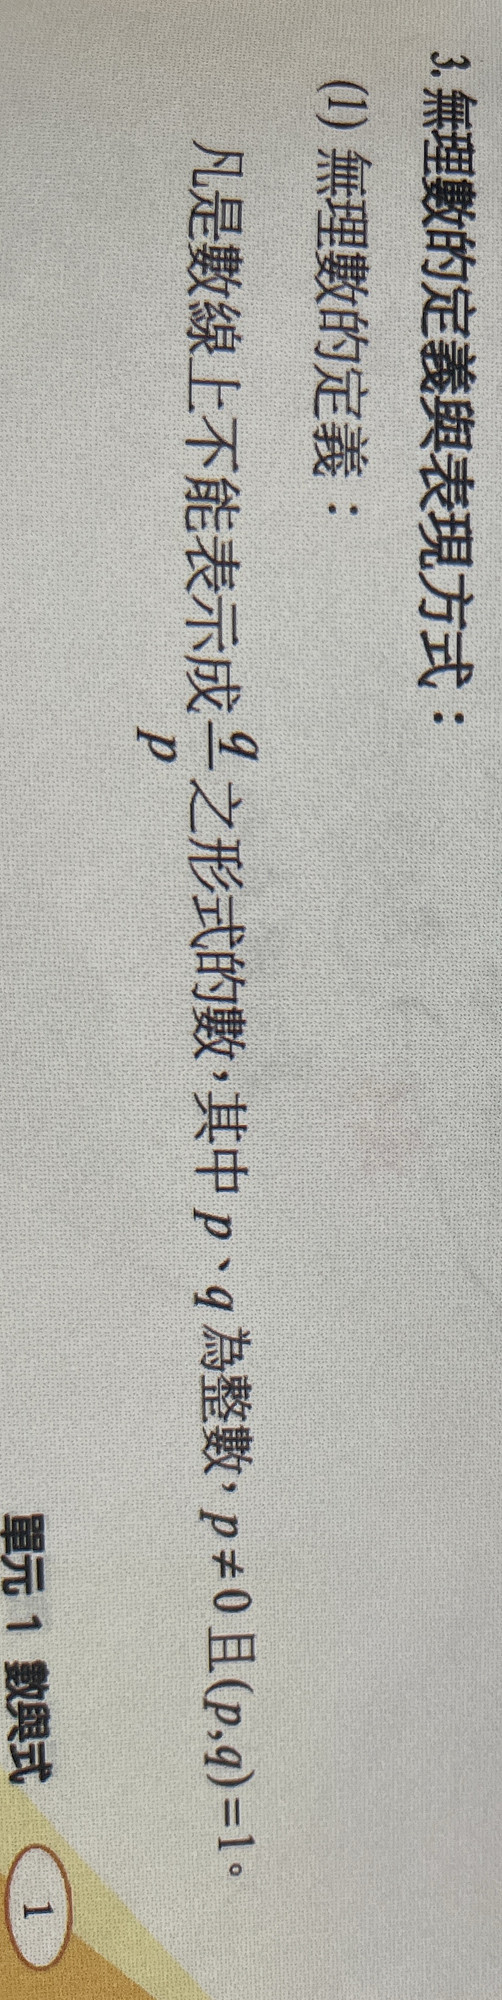 3. 無理數的定義與表現方式：
(1) 無理數的定義：
凡是數線上不能表示成 q/p 之形式的數，其中 p、q 為整數，p ≠ 0 且 (p,q) = 1。
單元 1 數與式 1